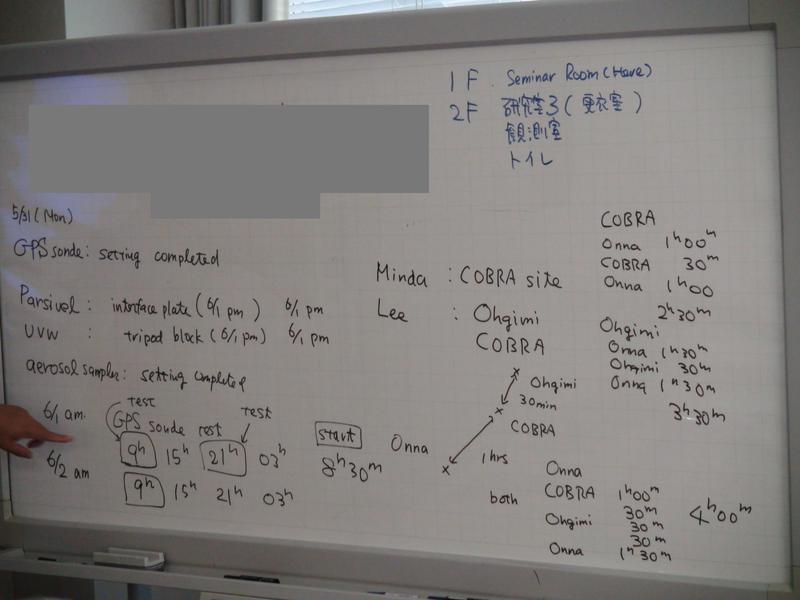 1F Seminar Room (Here)
2F 研究室3 (更衣室)
観測室
トイレ
5/31 (Mon)
GPS sonde: setting completed
Parsivel : interface plate (6/1 pm) 6/1 pm
UVW : tripod block (6/1 pm) 6/1 pm
aerosol sampler: setting completed
test
6/1 am. GPS sonde test test
9h 15h 21h 03h
6/2 am
9h 15h 21h 03h
start
8h30m
Minda : COBRA site
Lee : Ohgimi
COBRA
Ohgimi
30min
COBRA
Onna
1hrs
COBRA
Onna 1h00m
COBRA 30m
Onna 1h00
2h30m
Ohgimi
Onna 1h30m
Ohgimi 30m
Onna 1h30m
3h30m
both
Onna
COBRA 1h00m
30m
Ohgimi 30m
30m
Onna 1h30m
4h00m